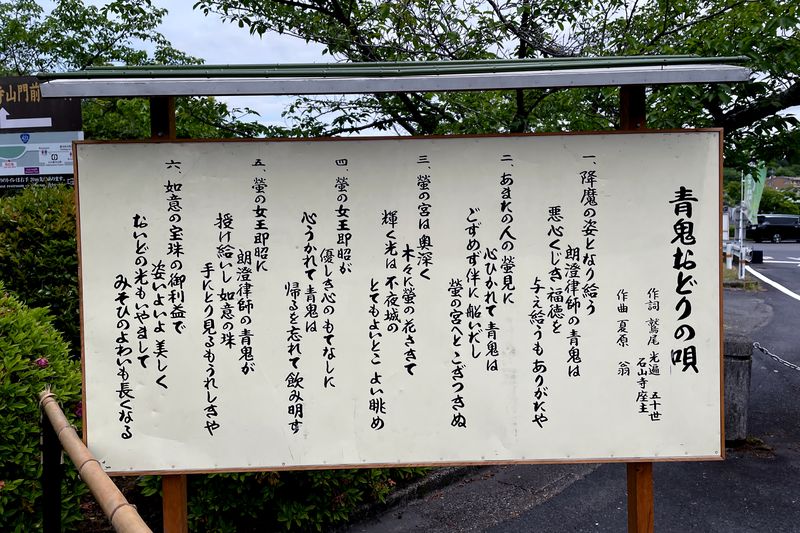 青鬼おどりの唄
作詞 鷲尾 光遍 五十世
石山寺座主
作曲 夏原 翁
一、降魔の姿となり給う
朗澄律師の青鬼は
悪心くじき福徳を
与え給うもありがたや
二、あまたの人の螢見に
心ひかれて青鬼は
ごずめず伴に船いだし
螢の宮へとこぎつきぬ
三、螢の宮は奥深く
木々に螢の花さきて
輝く光は不夜城の
とてもよいとこ よい眺め
四、螢の女王即昭が
優しき心のもてなしに
心うかれて青鬼は
帰るを忘れて飲み明す
五、螢の女王即昭に
朗澄律師の青鬼が
授け給いし如意の珠
手にとり見るもうれしきや
六、如意の宝珠の御利益で
姿いよいよ美しく
ないどの光もいやまして
みそひのよわいも長くなる
山門前